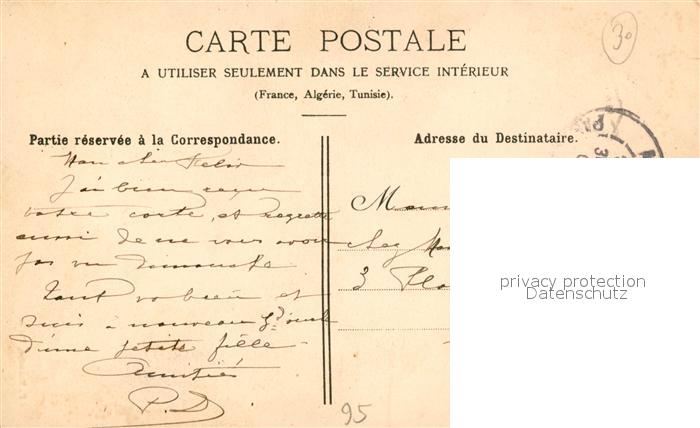 30
CARTE POSTALE
A UTILISER SEULEMENT DANS LE SERVICE INTÉRIEUR
(France, Algérie, Tunisie).
Partie réservée à la Correspondance.
Mon cher Felix
J'ai bien reçu
votre carte, et regrette
aussi de ne vous avoir
pas vu Dimanche
Tout va bien et
suis à nouveau
d'une petite fille
Amitiés
P.D
95
Adresse du Destinataire.
chez
3
privacy protection
Datenschutz